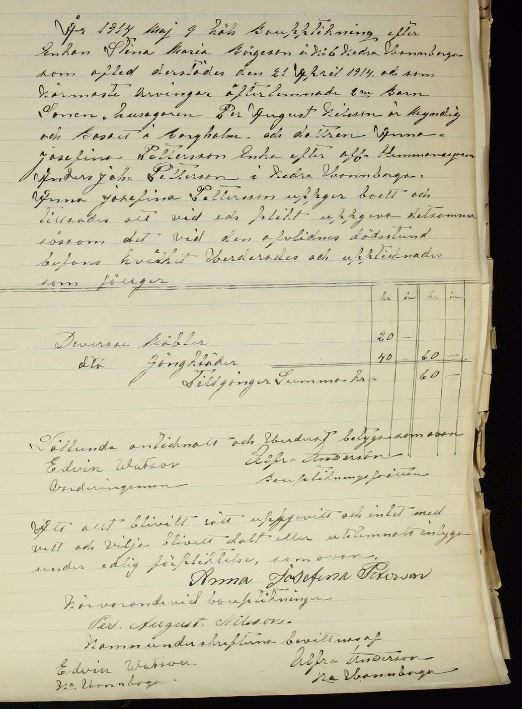 År 1914 Maj 9 höls Bouppteckning efter
Enkan Stina Maria Börgeson i N:o 6 Nedra Wannborga
som afled derstädes den 21 April 1914. och som
närmaste arvingar efterlemnade 2:ne Barn
Sonen Per August Nilsson är Myndig
och Bosatt i Borgholm. och dottren Anna-
Josefina Pettersson Enka efter afl. Hemmansegaren
Anders Joh. Petterson i Nedra Wannborga.
Anna Josefina Pettersson uppger boett och
tillsades att vid eds plikt uppgeva detsamma
såsom det vid den aflidnes dödsstund
befans hvilket Werderades och upptecknades
som föerger
kr ö kr ö
Deverse Möbler 20 -
dto Gångkläder 40 - 60 -
Tillgångar Summa kr - 60 -
Sålunda antecknats och Werderat betyga som ovan
Edvin Watson Alfrd Anderson
Värderingsman Bouppteckningsförättare
Att allt blivitt rätt uppgevitt och intet med
vett och vilja blivitt dolt eller utlemnats intyga
under edlig förpliktelse, som ovan.
Anna Josefina Peterson
Närvarande vid bouppteckningen
Per. August Nilsson.
Namnunderskrifterna bevittnas af
Edvin Watson Alfrd Anderson
Na Wannborga. Na Wannborga